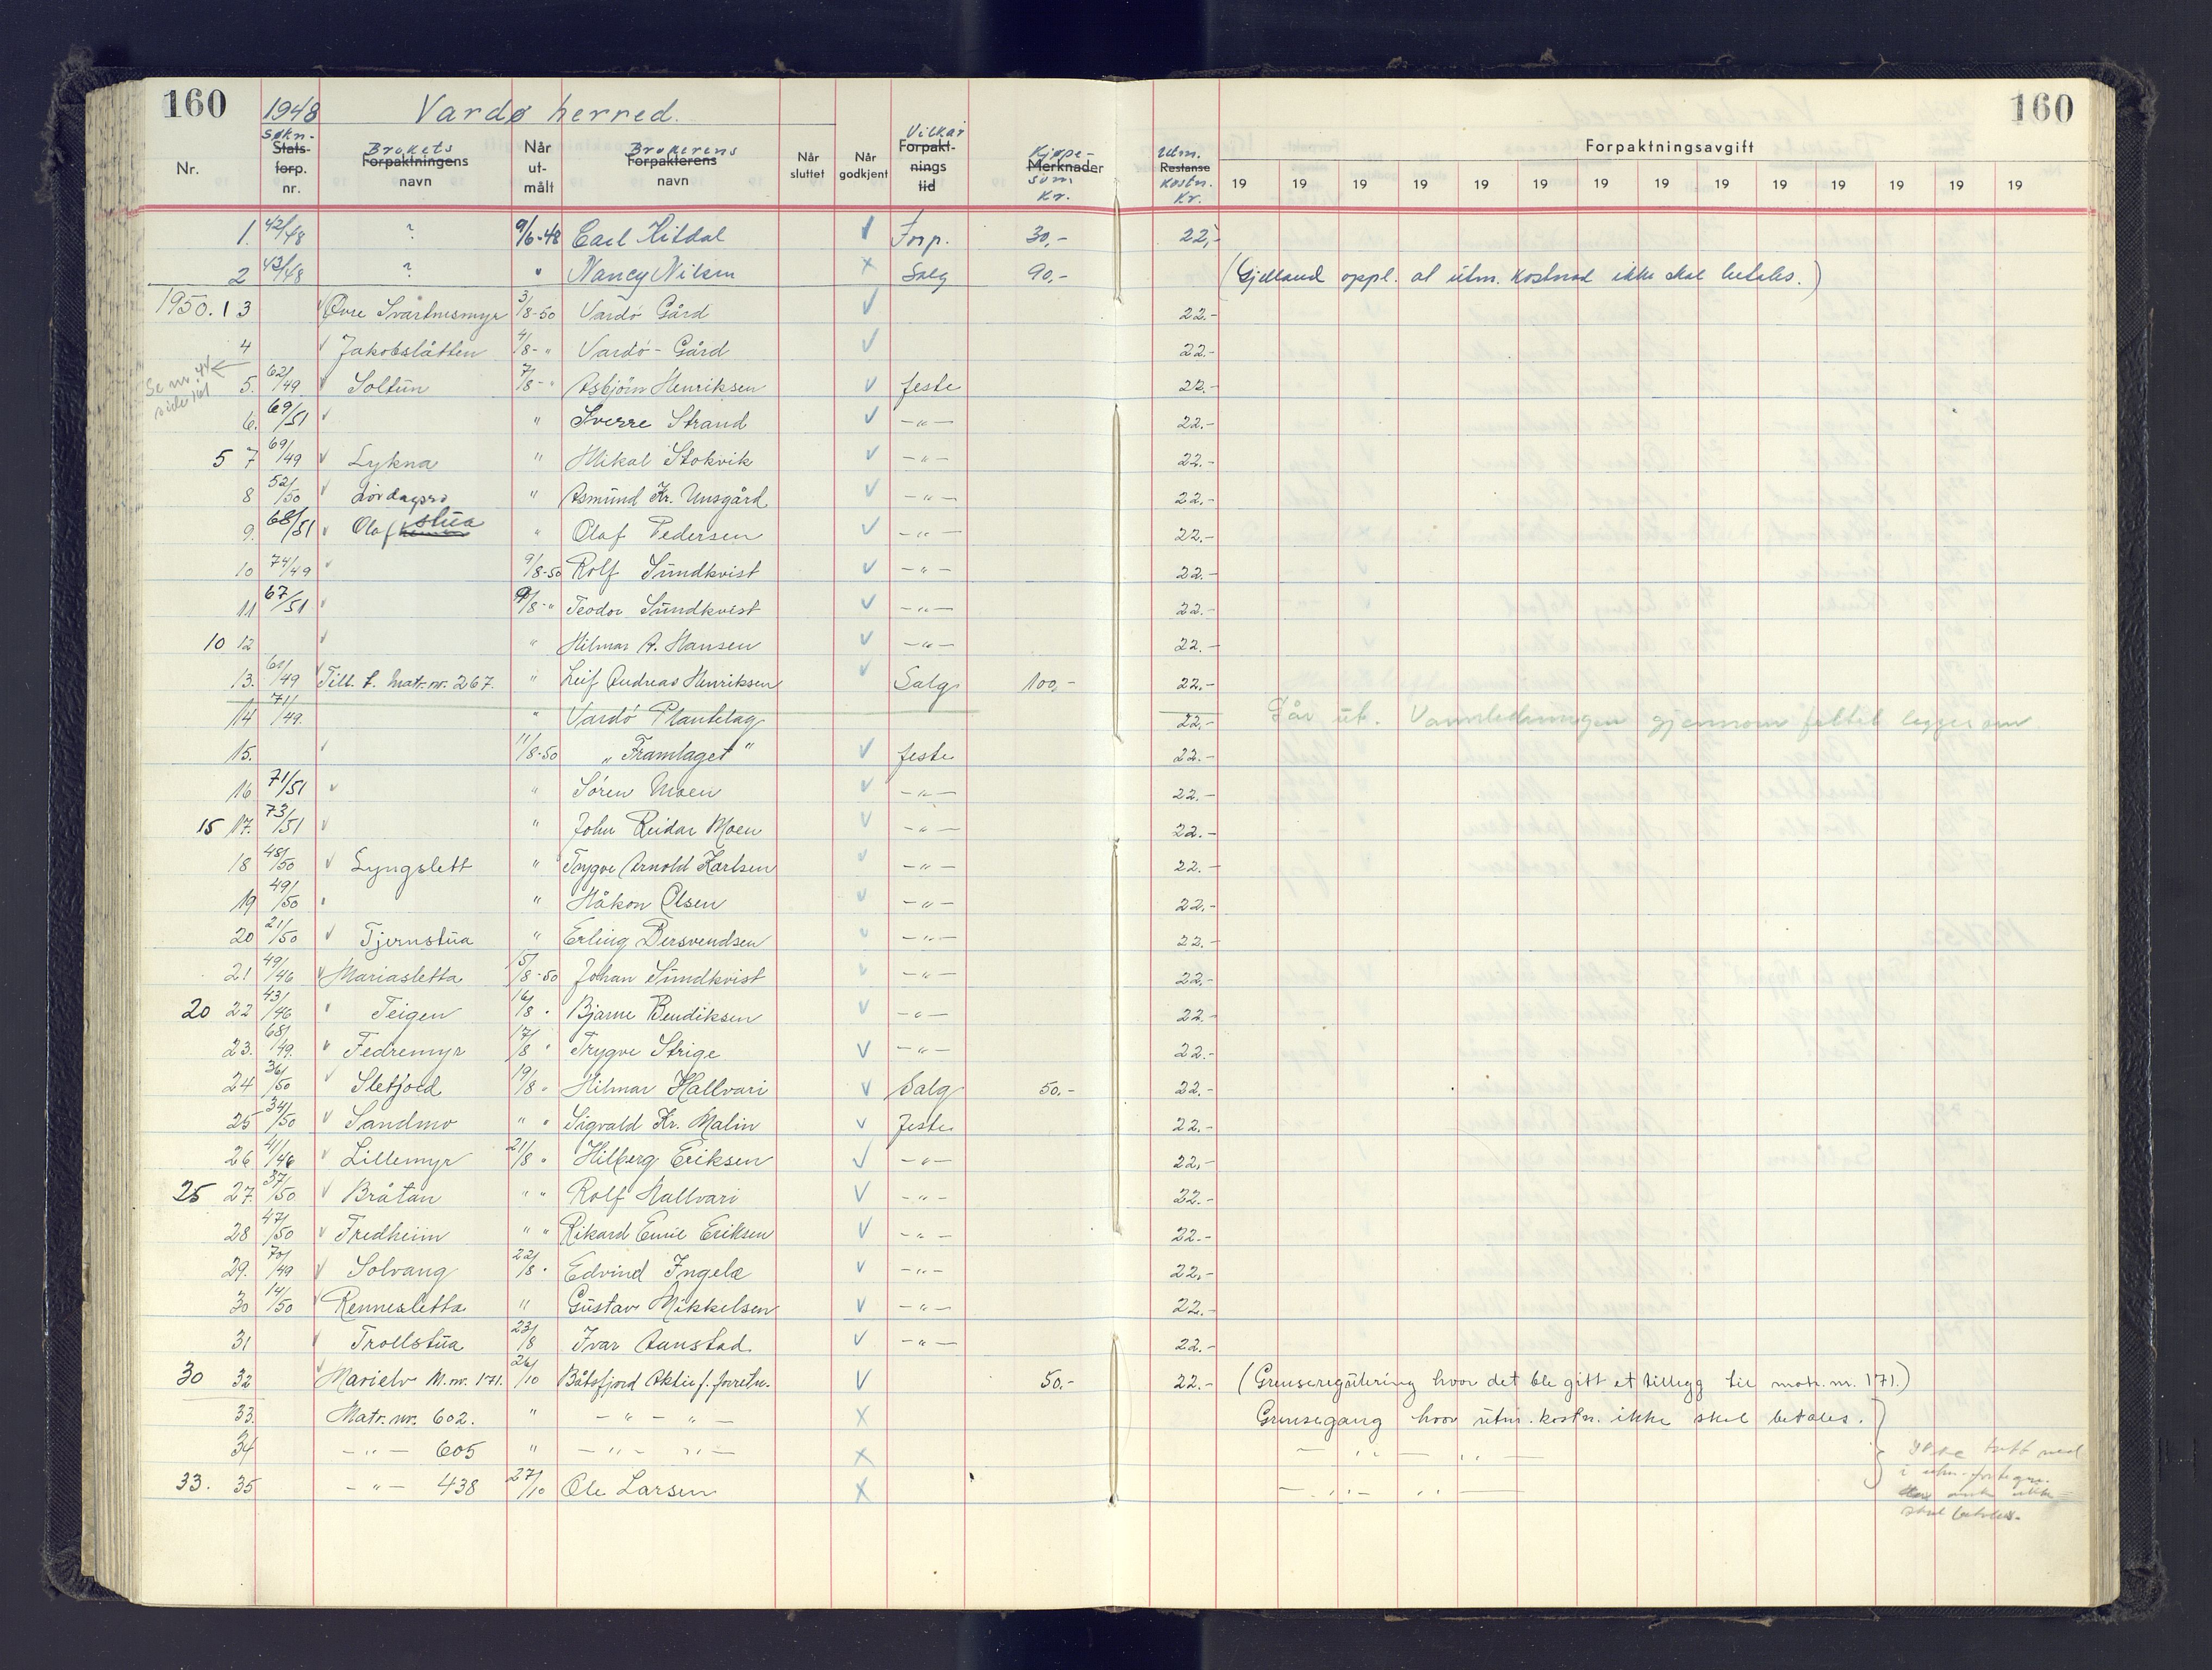 160 1948 Vardø herred. 160
Nr. Søkn- Stats- forp. nr. Brukets Forpaktningens navn Når ut- målt Brukerens Forpakterens navn Når sluttet Når godkjent Vilkår Forpakt- nings tid Kjøpe- Merknader sum Kr. Utm. Restanse kostn. Kr. Forpaktningsavgift
19 19 19 19 19 19 19 19 19 19 19 19 19 19
1. 42/48 ? 9/6-48 Carl Kildal Forp. 30,- 22,-
2 43/48 ? " Nancy Nilsen x Salg 90,- (Gjelland oppl. at utm. kostnad ikke skal betales.)
1950. 1 3 Øvre Svartnesmyr 3/8-50 Vardö Gård 22.-
4 Jakobslåtten 4/8- " Vardö - Gård 22.-
Se nr. 44 side 161
5. 62/49 Soltun 7/8- " Asbjörn Henriksen feste 22.-
6. 69/51 " Sverre Strand -"- 22.-
5 7 69/49 Lykna " Mikal Stokvik -"- 22.-
8 52/50 Lördagsro " Asmund Kr. Unsgård -"- 22.-
9. 68/51 Olafstua " Olaf Pedersen -"- 22.-
10 74/49 9/8-50 Rolf Sundkvist -"- 22.-
11 67/51 9/8- " Teodor Sundkvist -"- 22.-
10 12 " Hilmar A. Hansen -"- 22.-
13. 61/49 Till. t. Matr. nr. 267. " Leif Andreas Henriksen Salg 100,- 22.-
14 71/49. " Vardö Plantelag 22.- Går ut. Vannledningen gjennom feltet legges om
15. 11/8-50 " Framlaget " feste 22.-
16 71/51 " Sören Moen -"- 22.-
15 17. 73/51 " John Reidar Moen -"- 22.-
18 48/50 Lyngslett " Trygve Arnold Karlsen -"- 22.-
19 49/50 " Håkon Olsen -"- 22.-
20 21/50 Tjernstua " Erling Bersvendsen -"- 22.-
21 49/46 Mariasletta 15/8-50 Johan Sundkvist -"- 22.-
20 22 43/46 Teigen 16/8 " Bjarne Bendiksen -"- 22.-
23. 68/49. Fedremyr 17/8 " Trygve Strige -"- 22.-
24 36/50 Sletjord 19/8 " Hilmar Hallvari Salg 50.- 22.-
25 34/50 Sandmo " " Sigvald Kr. Malin feste 22.-
26 41/46 Lillemyr 21/8 " Hilberg Eriksen -"- 22.-
25 27. 37/50 Bråtan " " Rolf Hallvari -"- 22.-
28 47/50 Fredheim " " Rikard Emil Eriksen -"- 22.-
29. 70/49 Solvang 22/8 " Edvind Ingelæ -"- 22.-
30 14/50 Rennesletta " Gustav Mikkelsen -"- 22.-
31 Trollstua 23/8 Ivar Aunstad -"- 22.-
30 32 Marielv M.nr. 171. 26/10 Båtsfjord Aktie f. forretn. 50.- 22.- (Grenseregulering hvor det ble gitt et tillegg til matr. nr. 171.)
33. Matr. nr. 602. " - " - " - x Grensegang hvor utm. kostn. ikke skal betales.
34 - " - 605 " - " - " - x - " - " -
33. 35 - " - 438 27/10 Ole Larsen x - " - " -
Ikke tatt med
i utm.-fortegn.
ikke
skal betales.